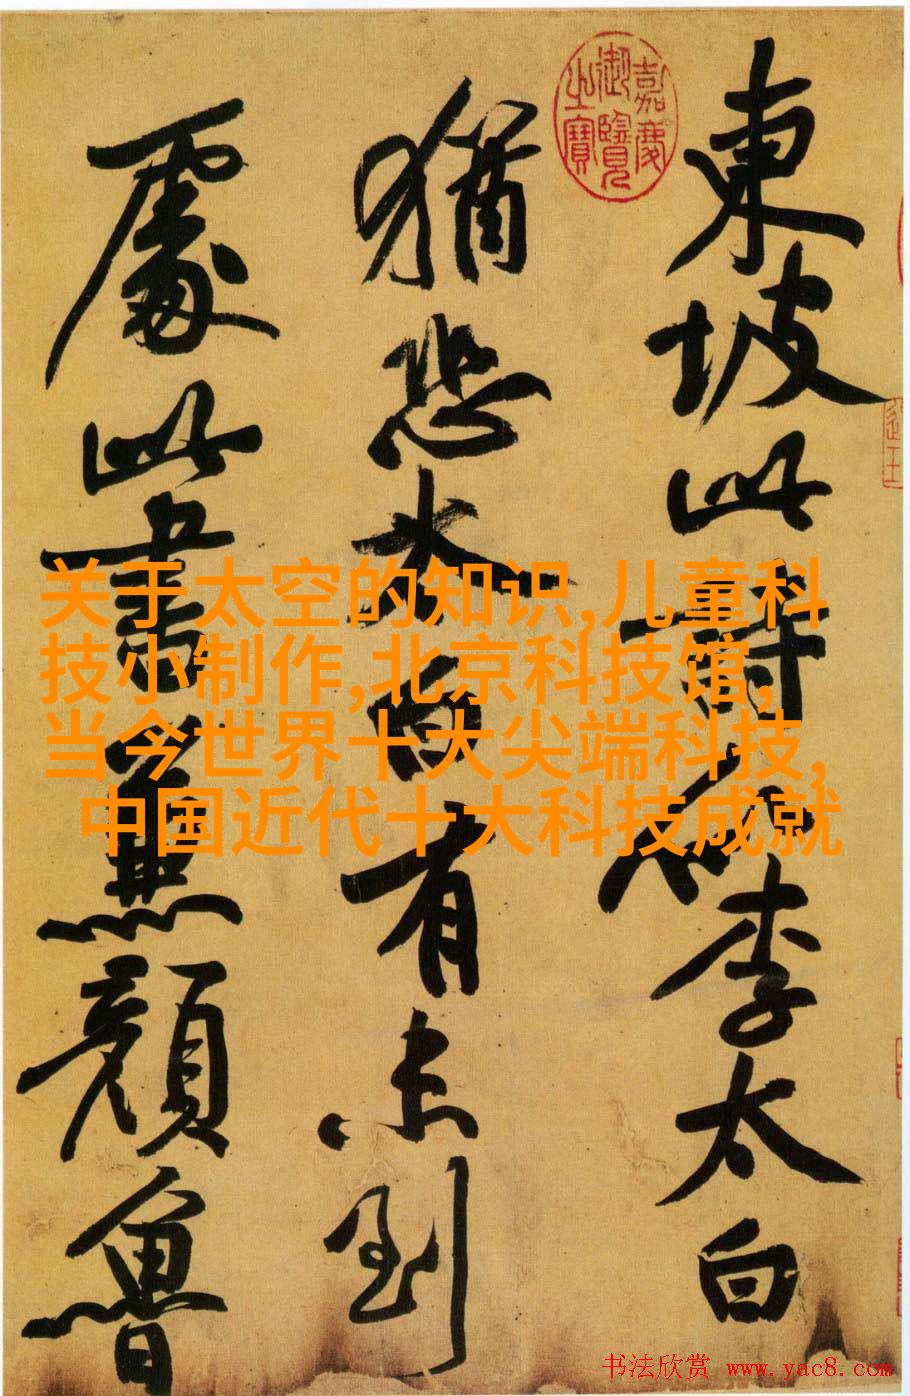 東坡此詩似李太白
猶恐太白有未到
處此書兼顔魯
嘉慶
御覽
之寶
关于太空的知识,儿童科
技小制作,北京科技馆,
当今世界十大尖端科技,
中国近代十大科技成就
书法欣赏 www.yac8.com